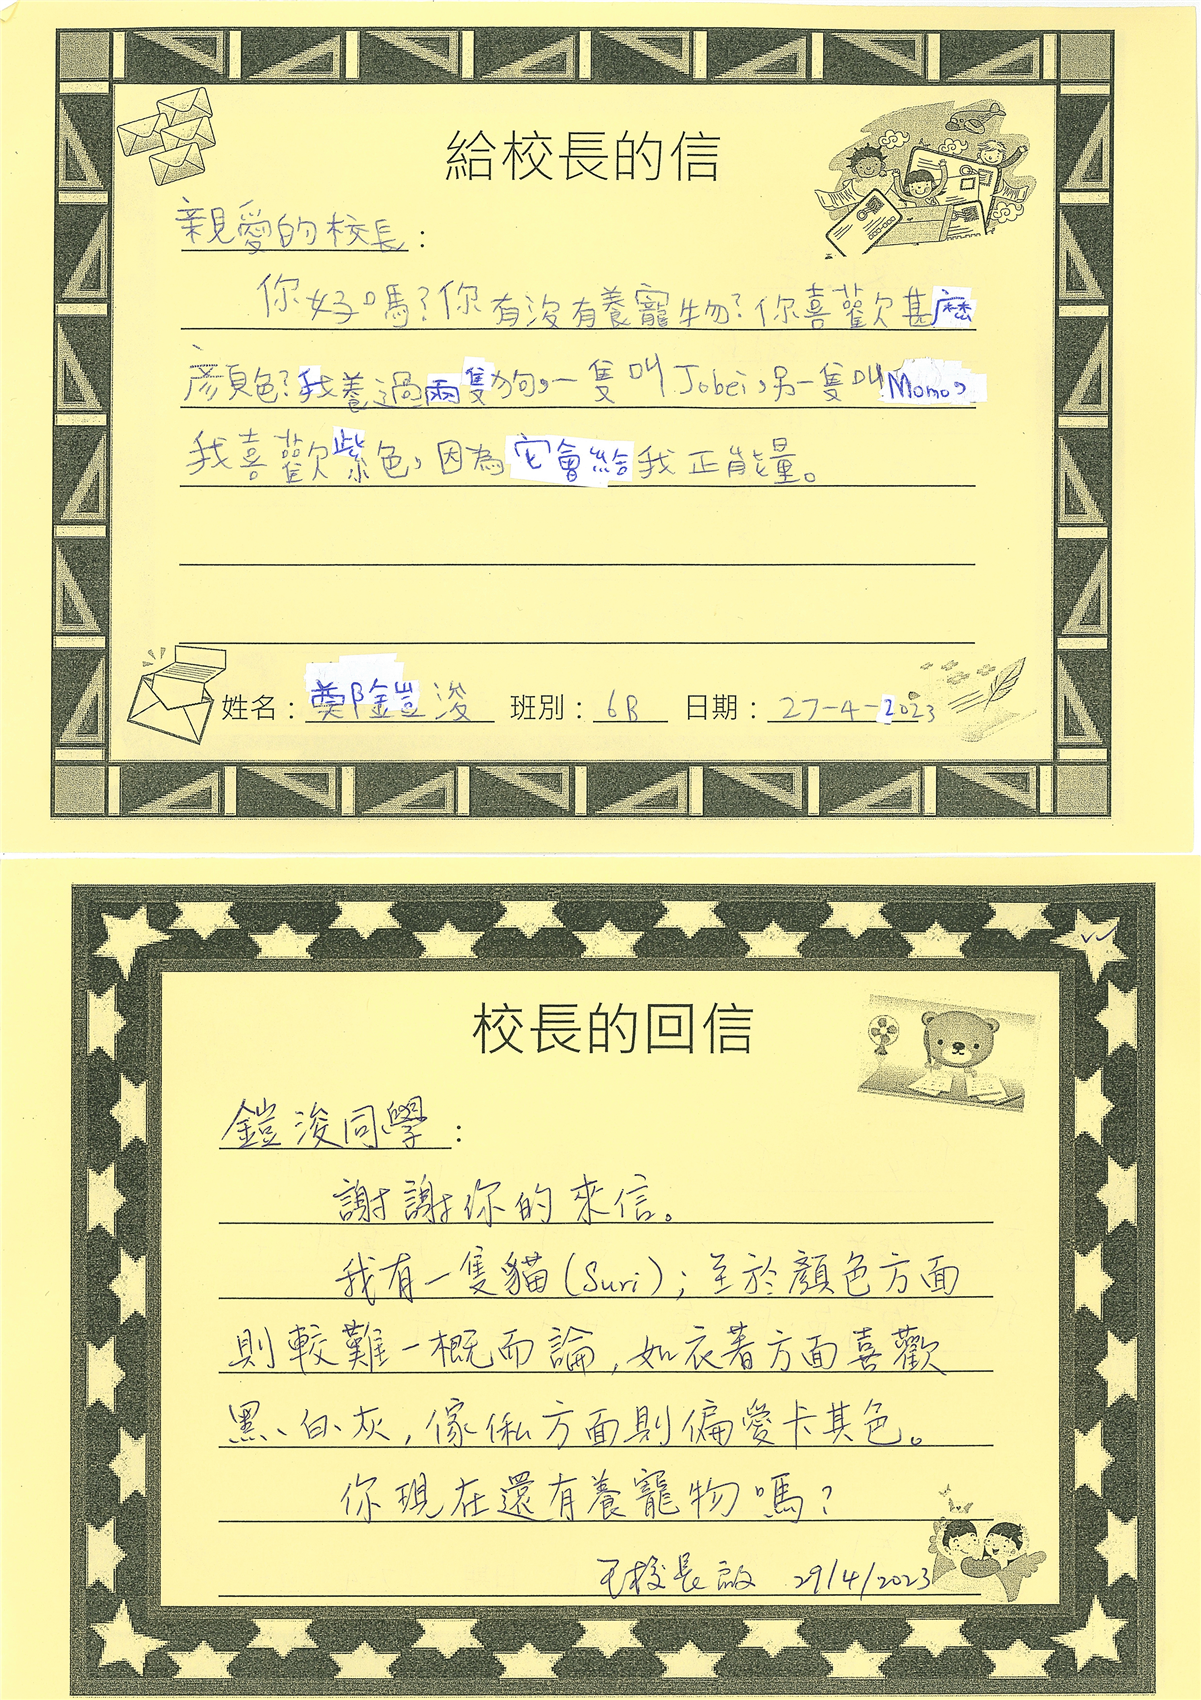 給校長的信
親愛的校長：
你好嗎？你有沒有養寵物？你喜歡甚麼
顏色？我養過兩隻狗，一隻叫Jobei，另一隻叫Momo，
我喜歡紫色，因為它會給我正能量。
姓名：鄭鎧浚 班別：6B 日期：27-4-2023
校長的回信
鎧浚同學：
謝謝你的來信。
我有一隻貓(Suri)；至於顏色方面
則較難一概而論，如衣著方面喜歡
黑、白、灰，傢俬方面則偏愛卡其色。
你現在還有養寵物嗎？
王校長啟 29/4/2023